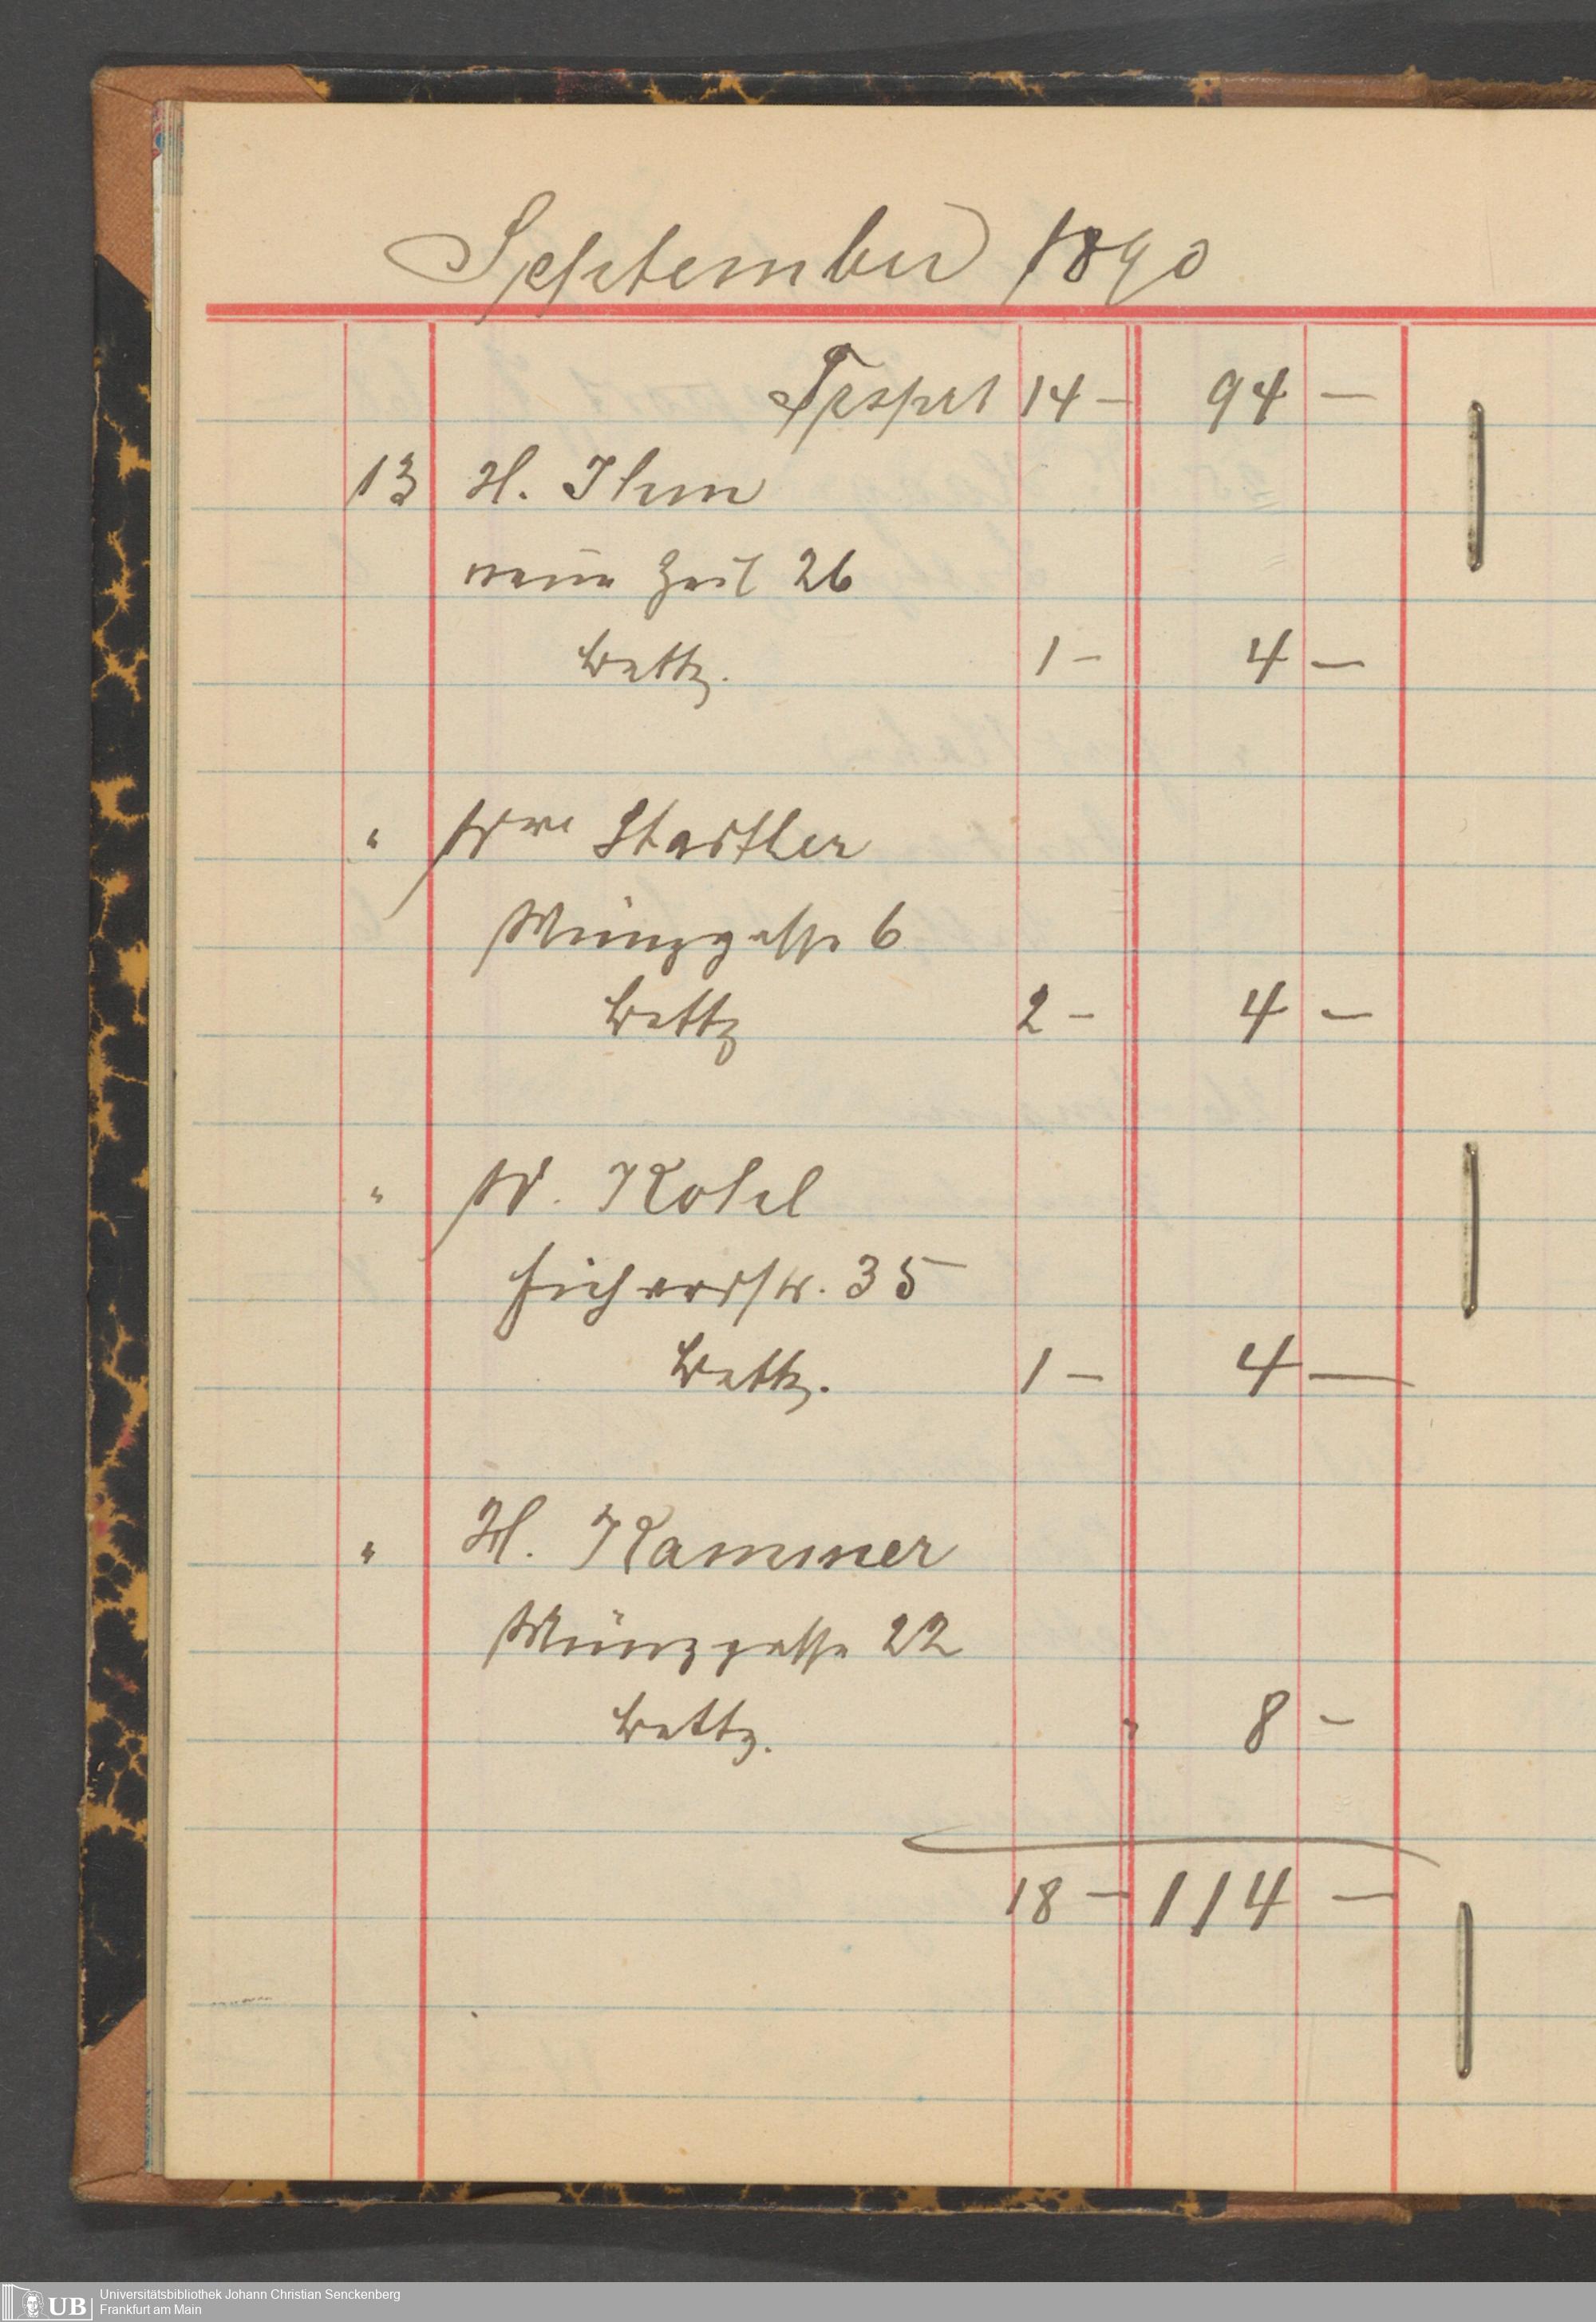 September 1890
Trsprt 14 - 94 -
13 H. Ihm
neue Zeil 26
Bettz. 1 - 4 -
" Wwe Stadtler
Münzgasse 6
Bettz 2 - 4 -
" W. Kobel
Fichardstr. 35
Bettz. 1 - 4 -
" H. Kammer
Münzgasse 22
Bettz. " 8 -
18 - 114 -
UB Universitätsbibliothek Johann Christian Senckenberg
Frankfurt am Main